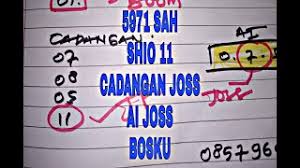 01.
BOOM
5971 SAH
CADANGAN.
AI
SHIO 11
07
0.7.
08
CADANGAN JOSS
05
JOSS
11
AI JOSS
BOSKU
0857960